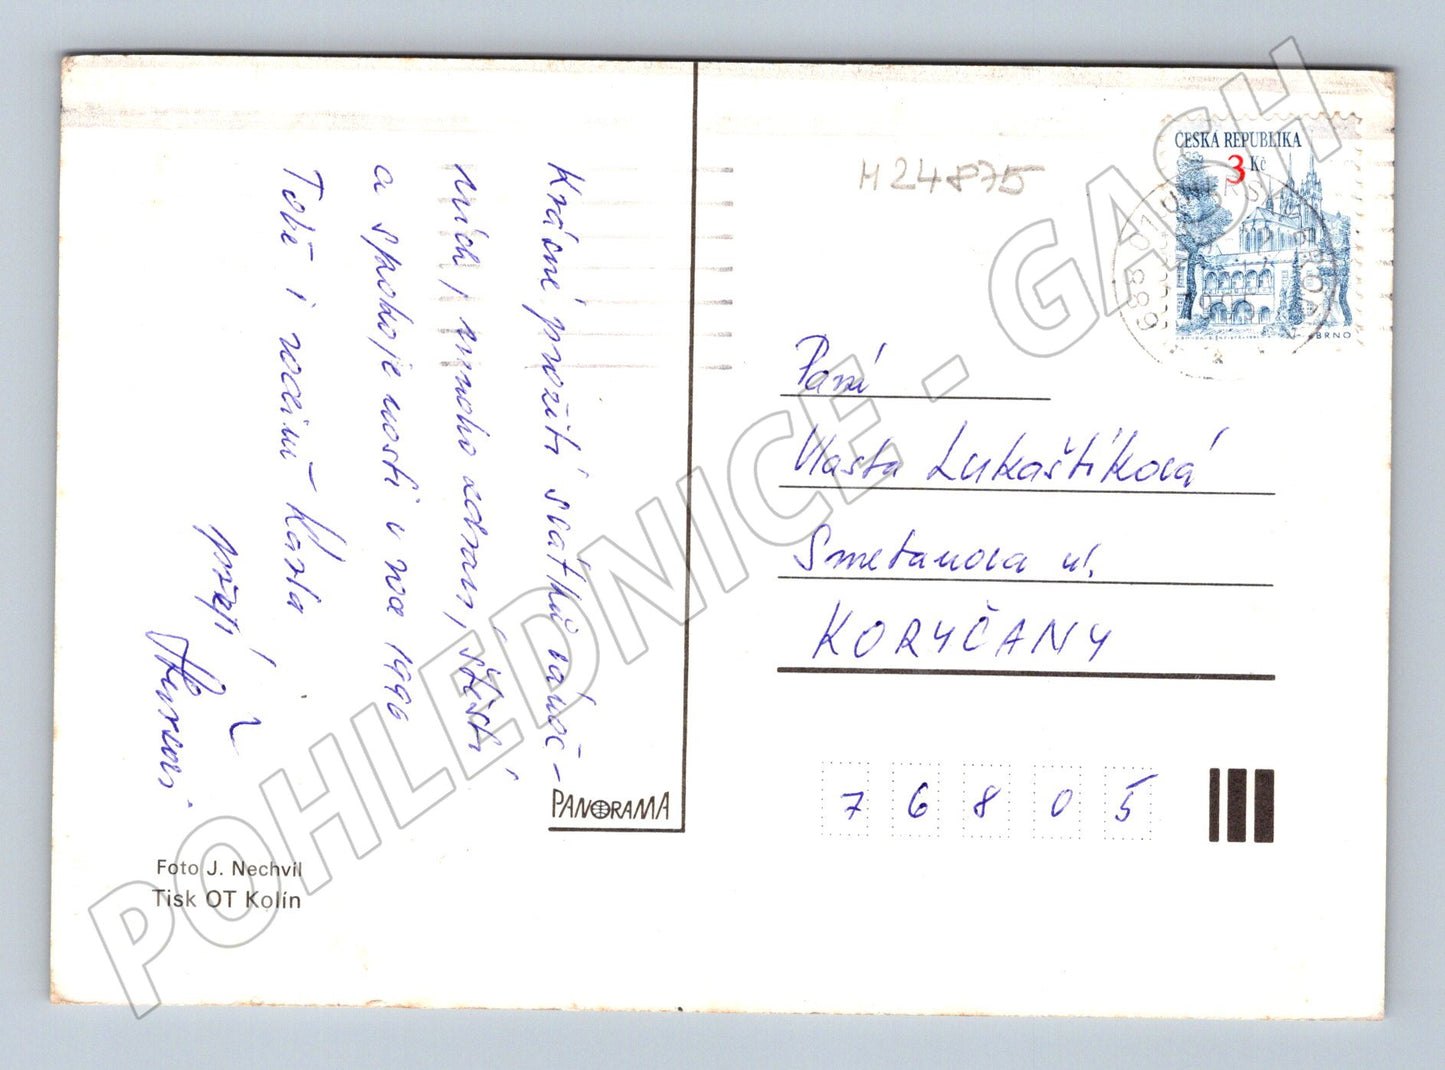 Krásné prožití svátků vánoč-
ních, mnoho zdraví, štěstí
a spokojenosti v roce 1996
Tobě i rodině Karla
přejí
PANORAMA
Foto J. Nechvil
Tisk OT Kolín
M24875
ČESKÁ REPUBLIKA
3 Kč
BRNO
688 01 UHERSKÝ BROD 1
Paní
Vlasta Lukaštíková
Smetanova ul.
KORYČANY
7 6 8 0 5
POHLEDNICE - GASH